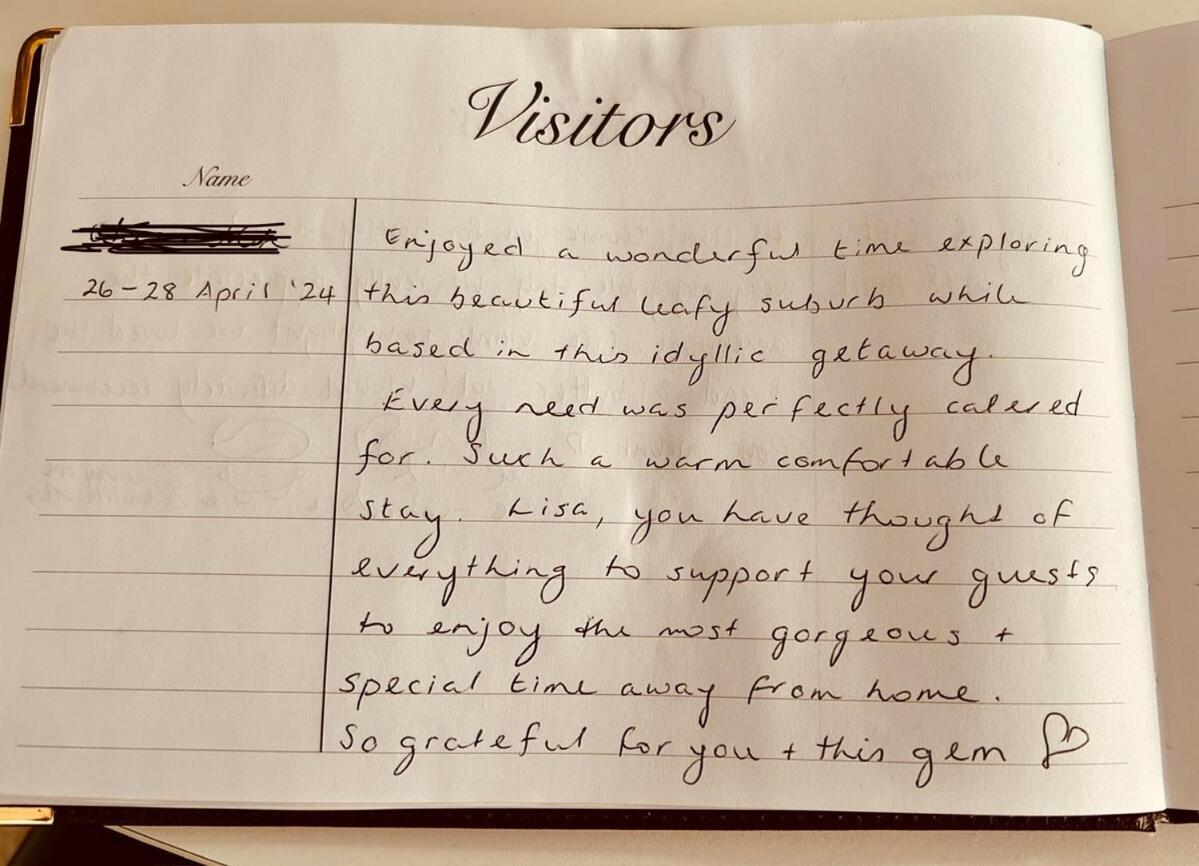 Visitors
Name
Enjoyed a wonderful time exploring
26-28 April '24 this beautiful leafy suburb while
based in this idyllic getaway.
Every need was perfectly catered
for. Such a warm comfortable
stay. Lisa, you have thought of
everything to support your guests
to enjoy the most gorgeous +
special time away from home.
So grateful for you + this gem ♡